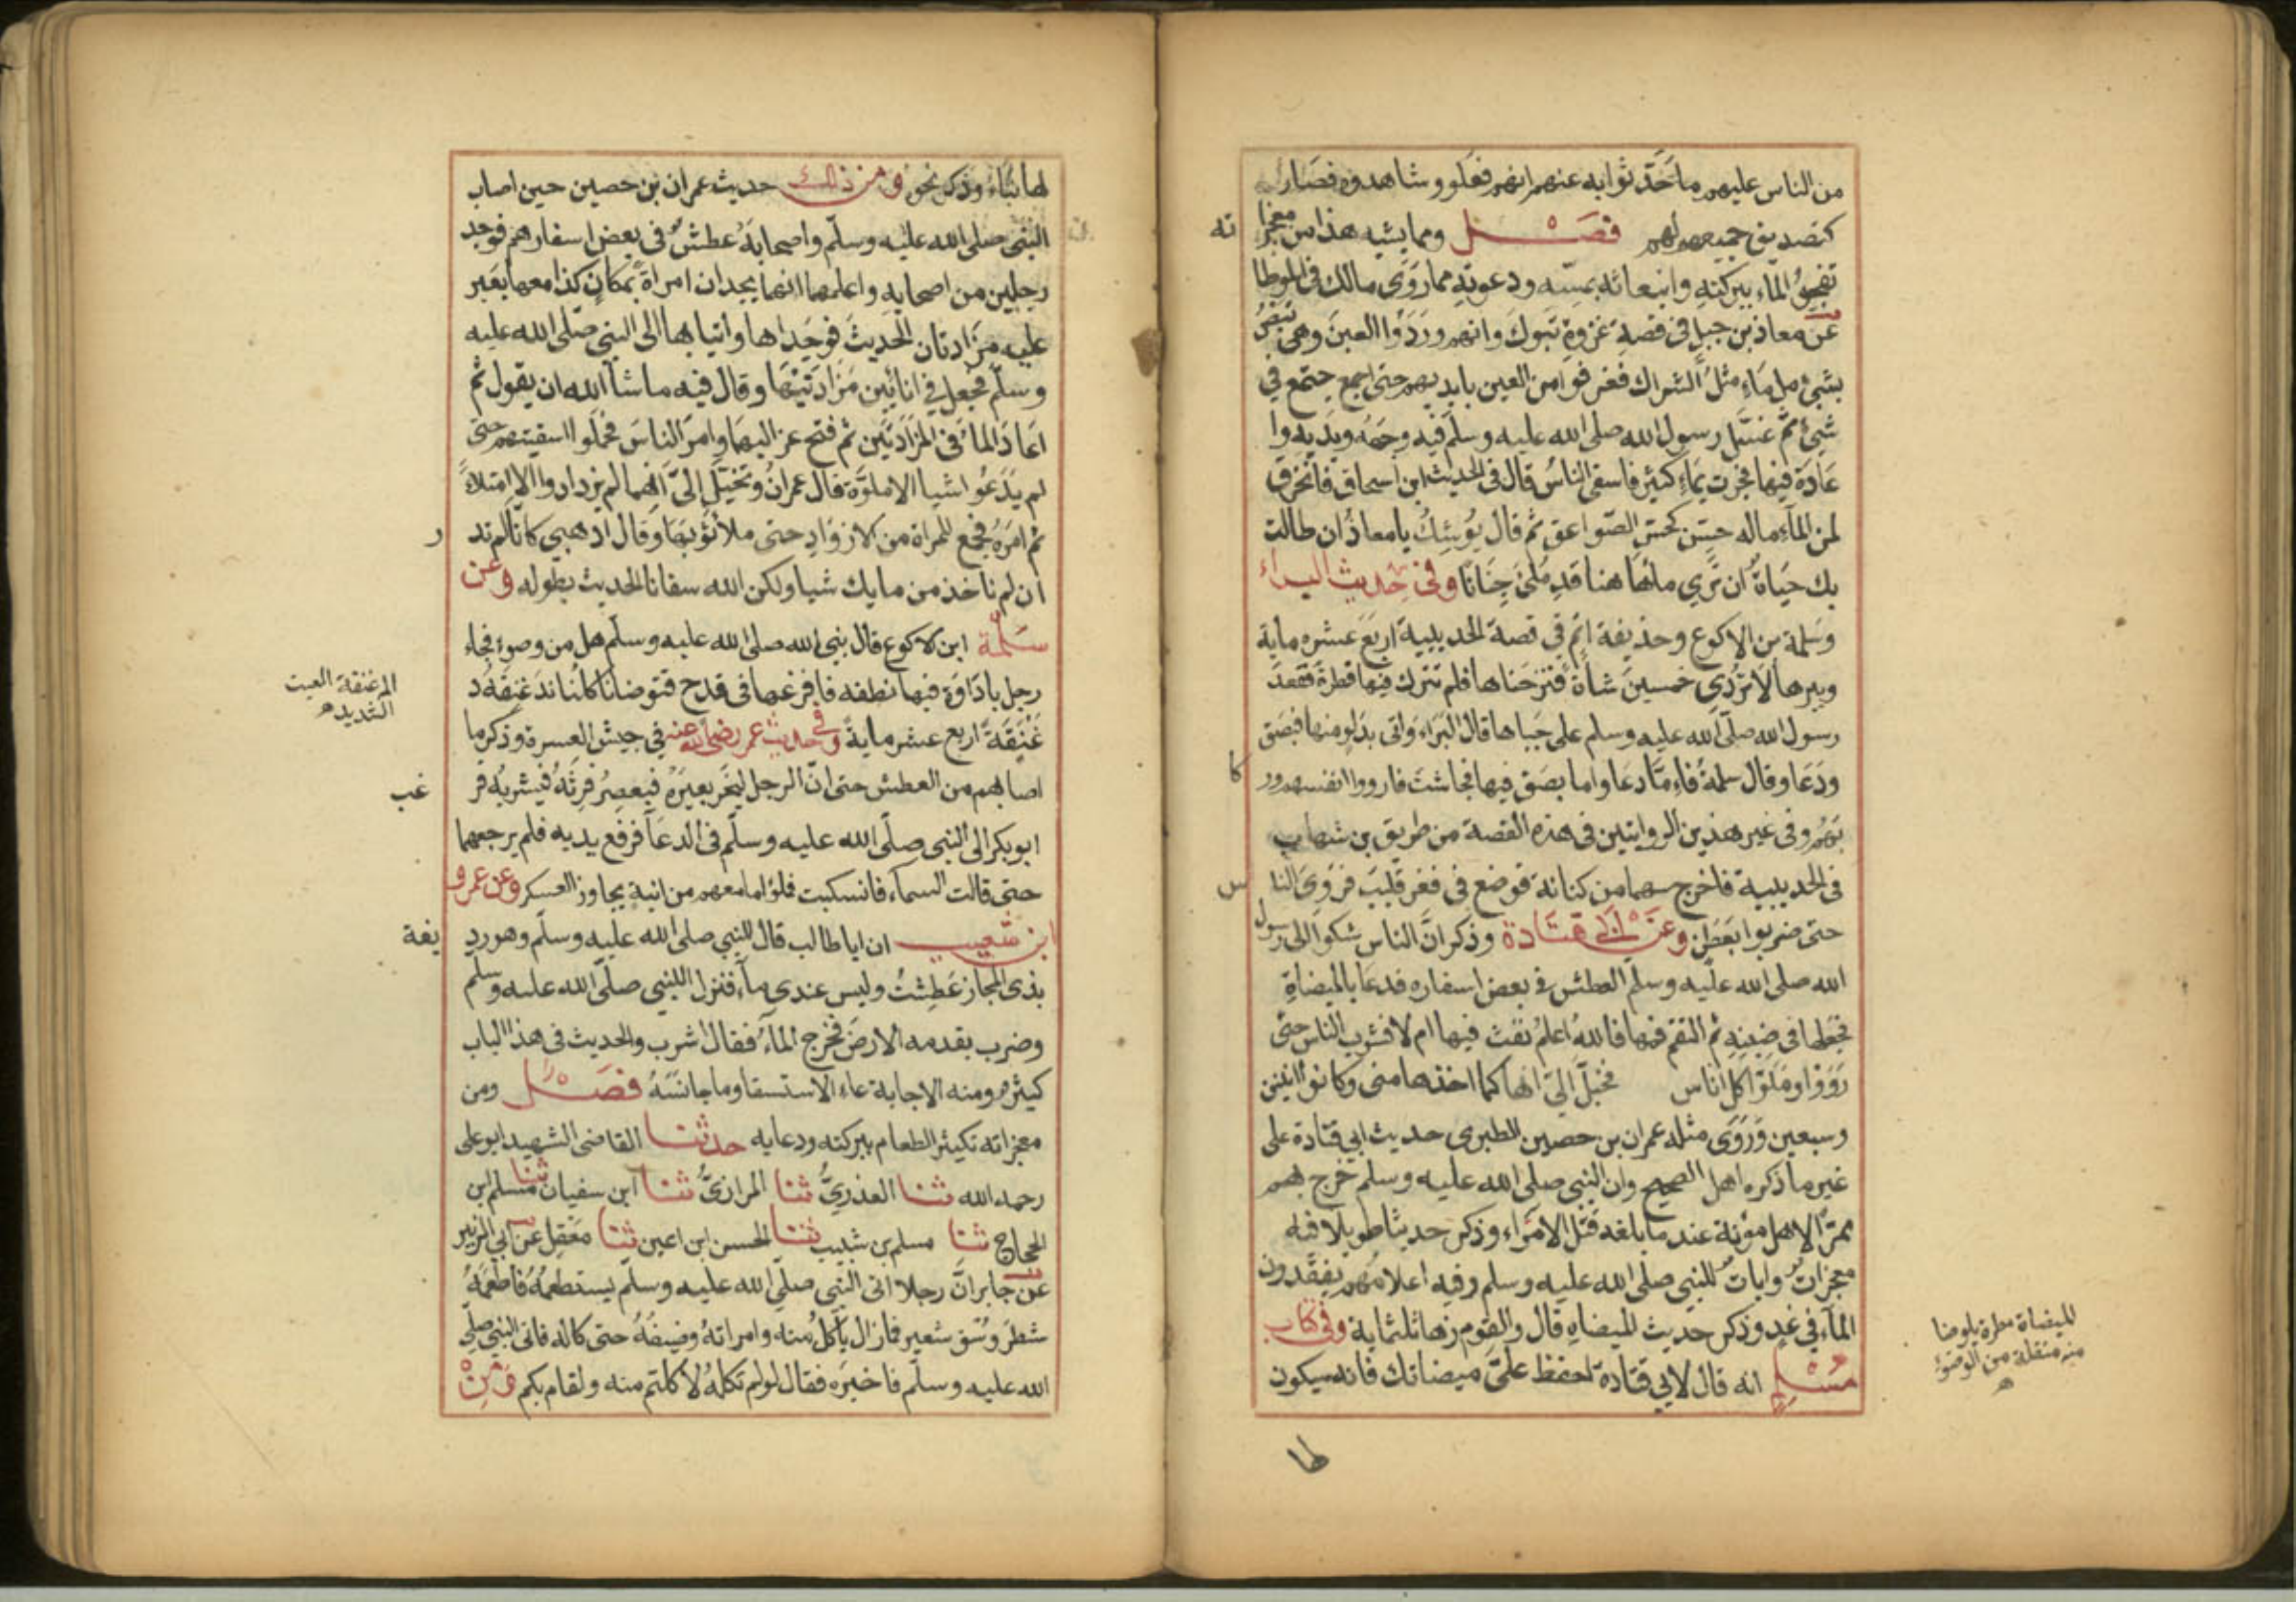 من الناس عليهم ما حدثوا به عنهم انهم فعلوه وشاهدوه فصار
كتصديق جميعهم لهم فصل ومما يشبه هذا من معجزا ته
تفجير الماء ببركته وانبعاثه بمسه ودعوته مما روى مالك في الموطا
عن معاذ بن جبل في قصة غزوة تبوك وانهم وردوا العين وهي تبض
بشئ من ماء مثل الشراك فغرفوا من العين بايديهم حتى اجمع جتمع في
شئ ثم غسل رسول الله صلى الله عليه وسلم فيه وجهه ويديه وا
عاده فيها فجرت بماء كثير فاسقى الناس قال في الحديث ابن اسحاق فانخرق
من الماء ماله حس كحس الصواعق ثم قال يوشك يا معاذ ان طالت
بك حياة ان ترى ماهاهنا قد ملئ جنانا وفي حديث البراء
وسلمة بن الاكوع وحديثه اتم في قصة الحديبية اربع عشره ماية
وبيرها لا تروى خمسين شاة فنزحناها فلم نترك فيها قطرة فقعد
رسول الله صلى الله عليه وسلم على جباها قال البراء واتى بدلو منها فبصق
ودعا وقال سلمة فاما دعا واما بصق فيها فجاشت فارووا انفسهم ور كا
بهم وفي غير هذين الروايتين في هذه القصة من طريق بن شهاب
في الحديبية فاخرج سهما من كنانة فوضع في قعر قليب فروى النا س
حتى ضربوا بعطن وعن ابي قتادة وذكر ان الناس شكوا الى رسول
الله صلى الله عليه وسلم العطش في بعض اسفاره فدعا بالميضاة
فجعلها في ضبنه ثم التقم فمها فالله اعلم نفث فيها ام لا فشرب الناس حتى
رووا وملوا كل اناس فخيل الي انها كما اخذها مني وكانوا اثنين
وسبعين وروى مثله عمران بن حصين الطبرى حديث ابي قتادة على
غير ما ذكره اهل الصحيح وان النبي صلى الله عليه وسلم خرج بهم
ممرا لاهل مؤتة عند ما بلغه قتل الامراء وذكر حديثا طويلا فيه
معجزات وايات للنبي صلى الله عليه وسلم وفيه اعلامهم يفقدون
الماء في غد وذكر حديث الميضاة قال والقوم زها ثلثماية وفي كتاب
مسلم انه قال لابي قتادة احفظ علي ميضاتك فانه سيكون
الميضاة مطرة يتوضا
منه منقلة من الوضوء
ه
لها نباء وذكر نحوه ومن ذلك حديث عمران بن حصين حين اصاب
النبي صلى الله عليه وسلم واصحابه عطش في بعض اسفارهم فوجد
رجلين من اصحابه واعلمهما انهما يجدان امراة بمكان كذا معها بعير
عليه مزادتان الحديث فوجداها واتيا بها الى النبي صلى الله عليه
وسلم فجعل في انائين من مزادتيها وقال فيه ما شا الله ان يقول ثم
اعاد الما في المزادتين ثم فتح عزاليهما وامر الناس فملوا اسقيتهم حتى
لم يدعوا شيا الا ملوه قال عمران وتخيل الي انهما لم يزدادوا الا امتلاء
ثم امر فجمع للمراة من الازواد حتى ملأ ثوبها وقال اذهبي كانا لم ند ر
ان لم ناخذ من مايك شيا ولكن الله سقانا الحديث بطوله وعن
سلمة ابن الاكوع قال نبي الله صلى الله عليه وسلم هل من وضوء فجاء
رجل باداوة فيها نطفه فافرغها في قدح فتوضانا كلنا ندغفقه د
غفقة اربع عشر ماية وفي حديث عمر رضي الله عنه في جيش العسرة وذكر ما
الدغفقة الصب
الشديد ه
اصابهم من العطش حتى ان الرجل لينحر بعيره فيعصر فرثه فيشربه فر غب
ابو بكر الى النبي صلى الله عليه وسلم في الدعا فرفع يديه فلم يرجعهما
حتى قالت السماء فانسكبت فملؤا ما معهم من انية يجاوز العسكر وعن عمرو
ابن شعيب ان ابا طالب قال للنبي صلى الله عليه وسلم وهو رد يفة
بذى المجاز عطشت وليس عندي ماء فنزل النبي صلى الله عليه وسلم
وضرب بقدمه الارض فخرج الماء فقال اشرب والحديث في هذا الباب
كثير ومنه الاجابة بدعاء الاستسقا وما جانسه فصل ومن
معجزاته تكثير الطعام ببركته ودعايه حدثنا القاضي الشهيد ابو على
رحمه الله ثنا العذري ثنا الرازي ثنا ابن سفيان ثنا مسلم ابن
الحجاج ثنا مسلم بن شبيب ثنا الحسن ابن اعين ثنا معقل عن ابي الزبير
عن جابر ان رجلا اتى النبي صلى الله عليه وسلم يستطعمه فاطعمه
شطر وسق شعير فما زال ياكل منه وامراته وضيفه حتى كاله فاتى النبي صلى
الله عليه وسلم فاخبره فقال لو لم تكله لاكلتم منه ولقام بكم ومن